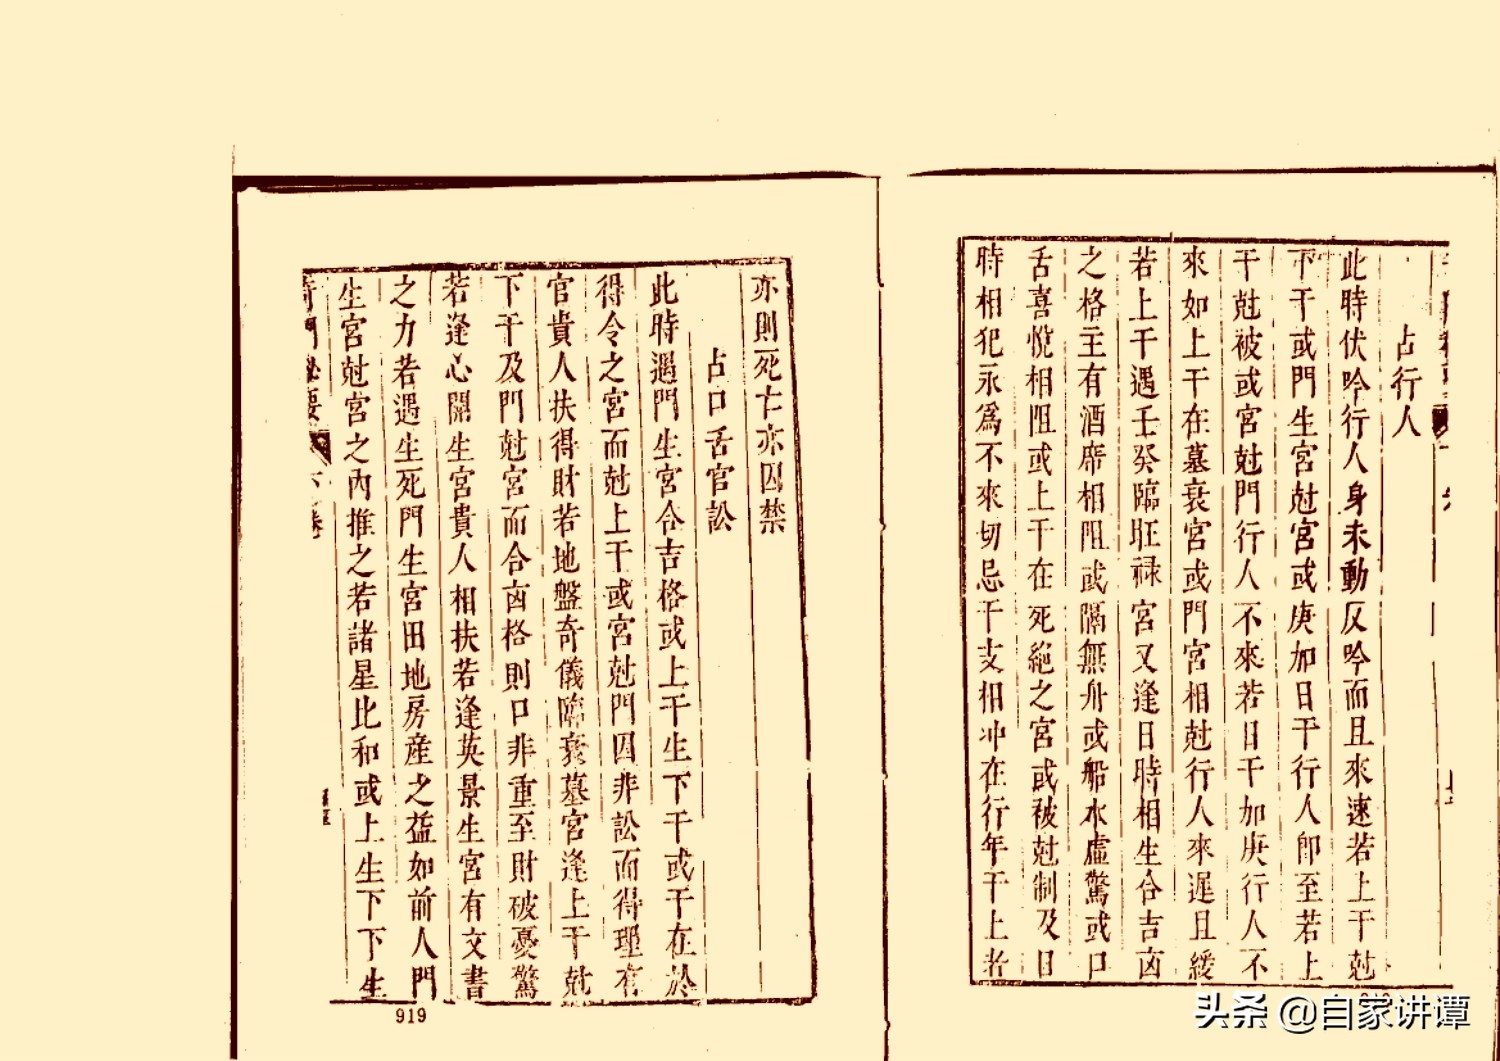 占行人
此時伏吟行人身未動反吟而且來速若上干尅
下干或門生宮尅宮或庚加日干行人卽至若上
干尅被或宮尅門行人不來若日干加庚行人不
來如上干在墓衰宮或門宮相尅行人來遲且緩
若上干遇壬癸臨旺祿宮又逢日時相生合吉凶
之格主有酒席相阻或隔無舟或船水虛驚或口
舌喜悅相阻或上干在死絕之宮或被尅制及日
時相犯永爲不來切忌干支相冲在行年干上者
亦則死亡亦囚禁
占口舌官訟
此時遇門生宮合吉格或上干生下干或干在於
得令之宮而尅上干或宮尅門囚非訟而得理有
官貴人扶得財若地盤奇儀臨衰墓宮逢上干尅
下干及門尅宮而合凶格則口非重至財破憂驚
若逢心開生宮貴人相扶若逢英景生宮有文書
之力若遇生死門生宮田地房産之益如前人門
生宮尅宮之內推之若諸星比和或上生下下生
奇門秘要
下卷
919
头条 @自家讲谭